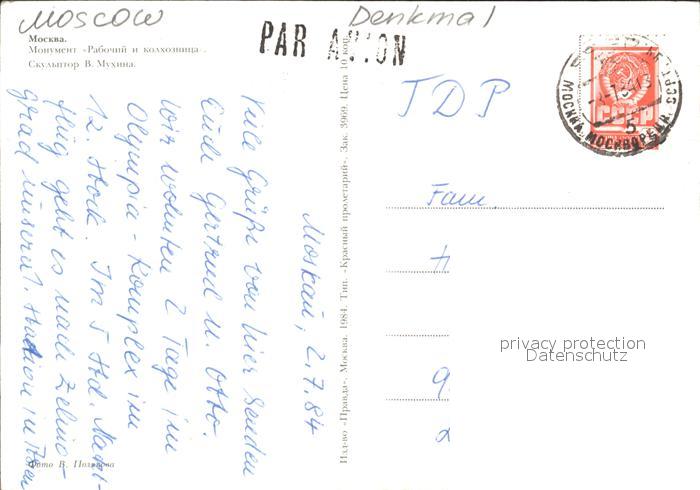 Moscow
Denkmal
Москва.
Монумент «Рабочий и колхозница».
Скульптор В. Мухина.
PAR AVION
Moskau, 2.7.84
Viele Grüße von hier senden
Euch Gertrud u. Otto.
Wir wohnten 2 Tage im
Olympia-Komplex im
12. Stock. Im 5 Std. Nacht-
flug geht es nach Zelino-
grad unserer 1. Station in
Фото В. Полякова
Изд-во «Правда». Москва. 1984. Тип. «Красный пролетарий». Зак. 3969. Цена 10 коп.
СССР
МОСКВА
5
TDP
Fam.
H
privacy protection
Datenschutz